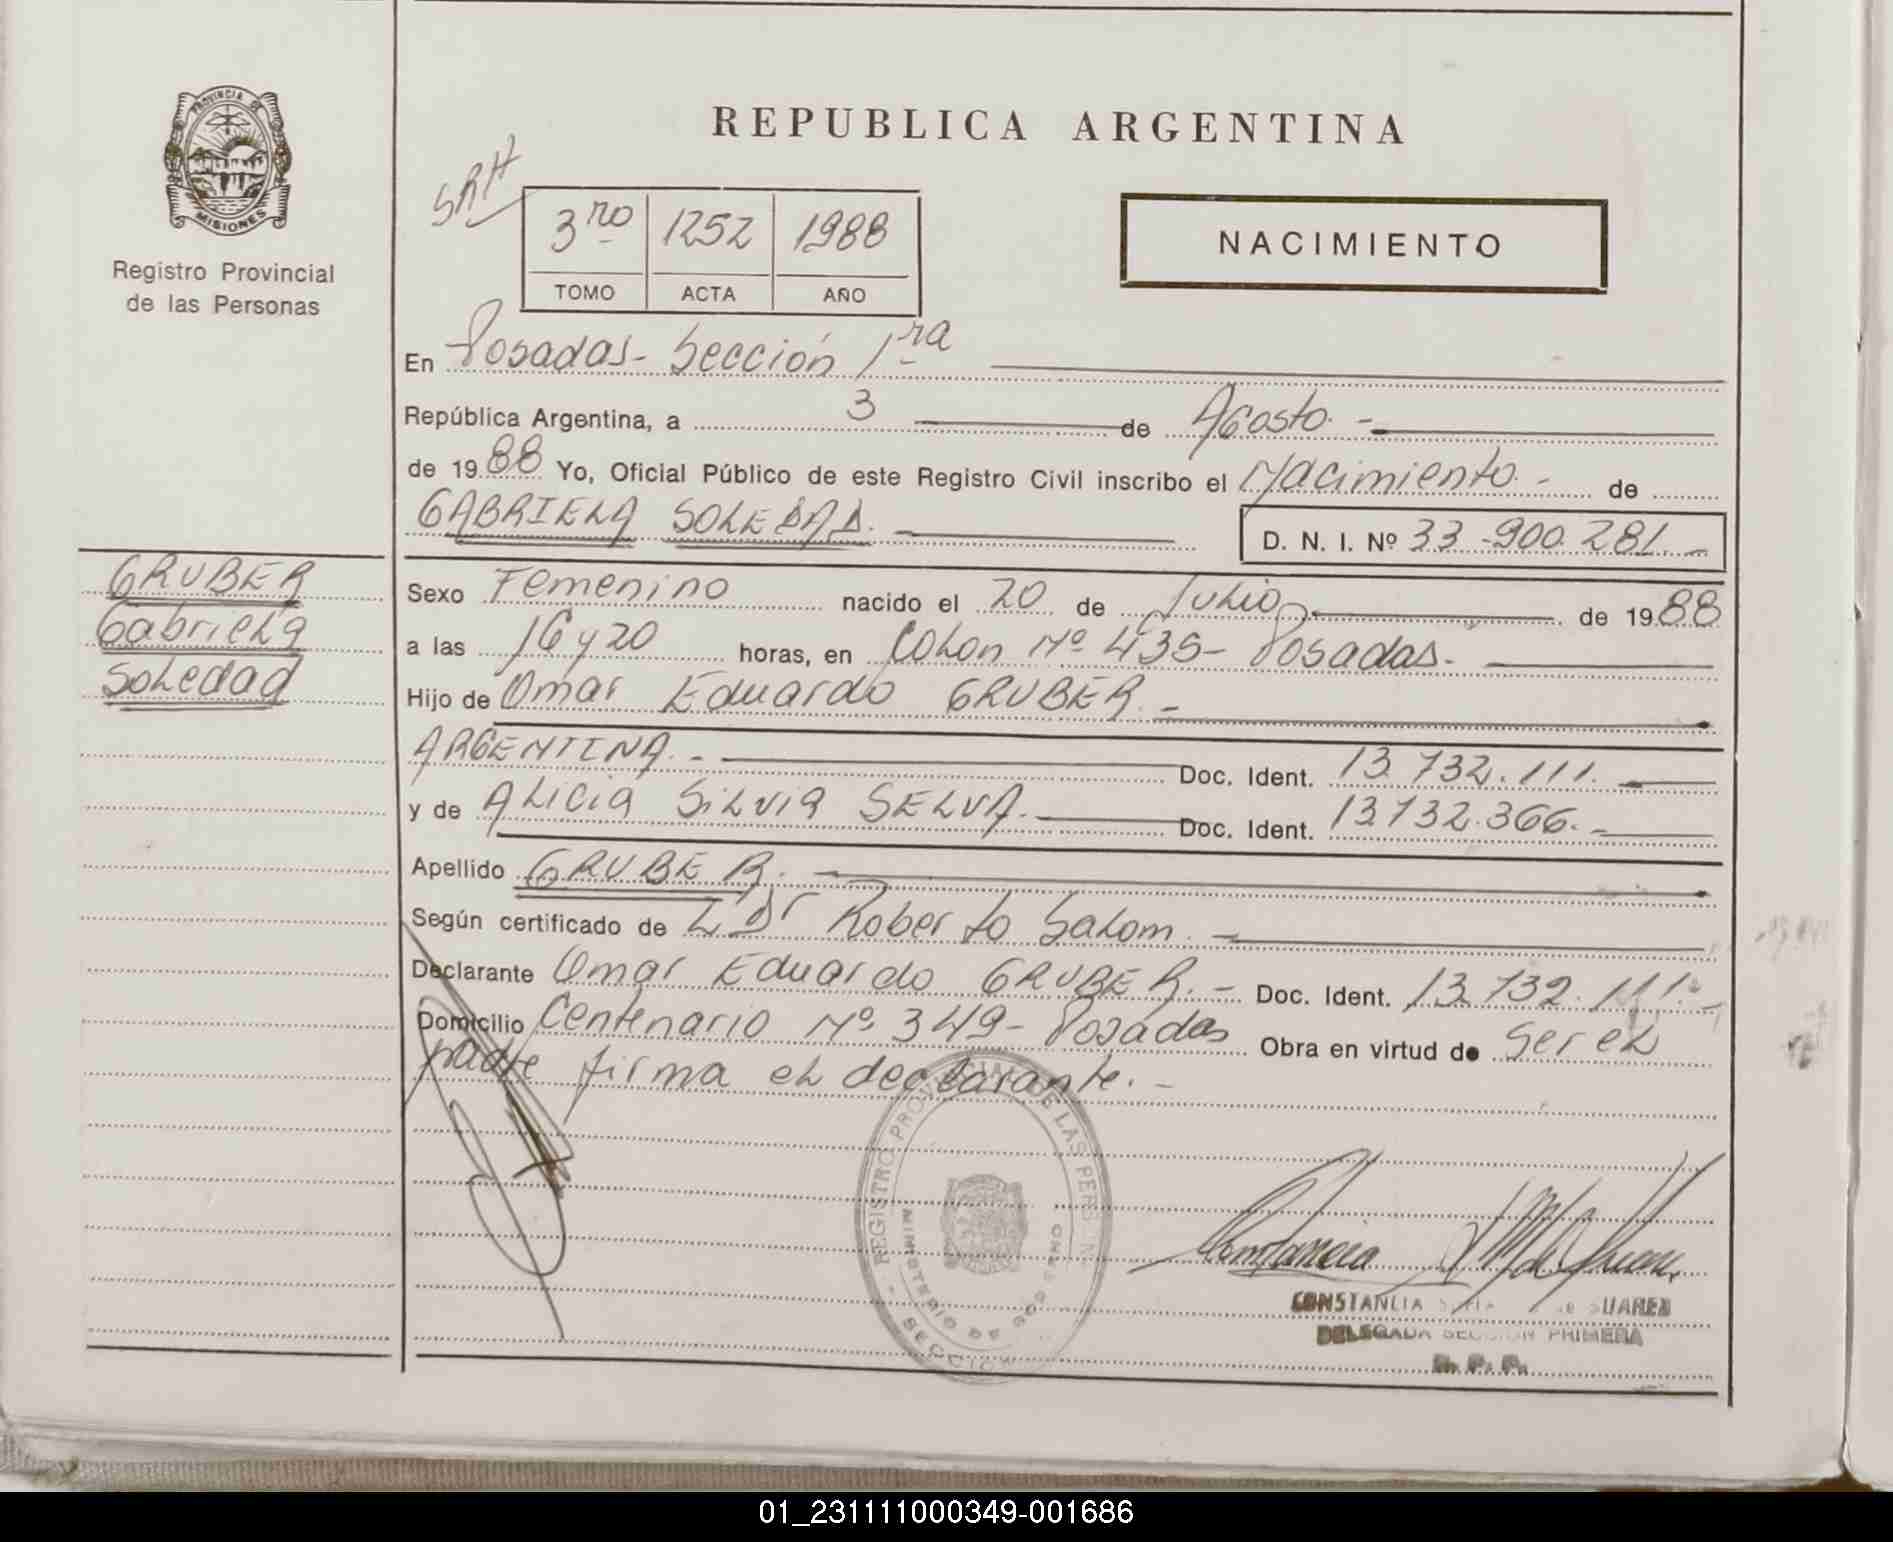 PROVINCIA DE
MISIONES
Registro Provincial
de las Personas
REPUBLICA ARGENTINA
SRH
3ro 1252 1988
TOMO ACTA AÑO
NACIMIENTO
En Posadas - Sección 1ra
República Argentina, a 3 de Agosto. -
de 1988 Yo, Oficial Público de este Registro Civil inscribo el Nacimiento. - de
GABRIELA SOLEDAD. -
D. N. I. Nº 33.900.281. -
GRUBER
Gabriela
Soledad
Sexo Femenino nacido el 20 de Julio de 1988
a las 16 y 20 horas, en Colon Nº 435 - Posadas. -
Hijo de Omar Eduardo GRUBER. -
ARGENTINA. - Doc. Ident. 13.732.111. -
y de Alicia Silvia SELVA. - Doc. Ident. 13.732.366. -
Apellido GRUBER. -
Según certificado de L Dr Roberto Salom. -
Declarante Omar Eduardo GRUBER. - Doc. Ident. 13.732.111. -
Domicilio Centenario Nº 349 - Posadas Obra en virtud de ser el
padre firma el declarante. -
REGISTRO PROVINCIAL DE LAS PERS
MINISTERIO DE GOBIERNO
SECCION
Constancia
CONSTANCIA de SUAREZ
DELEGADA SECCION PRIMERA
R. P. P.
01_231111000349-001686